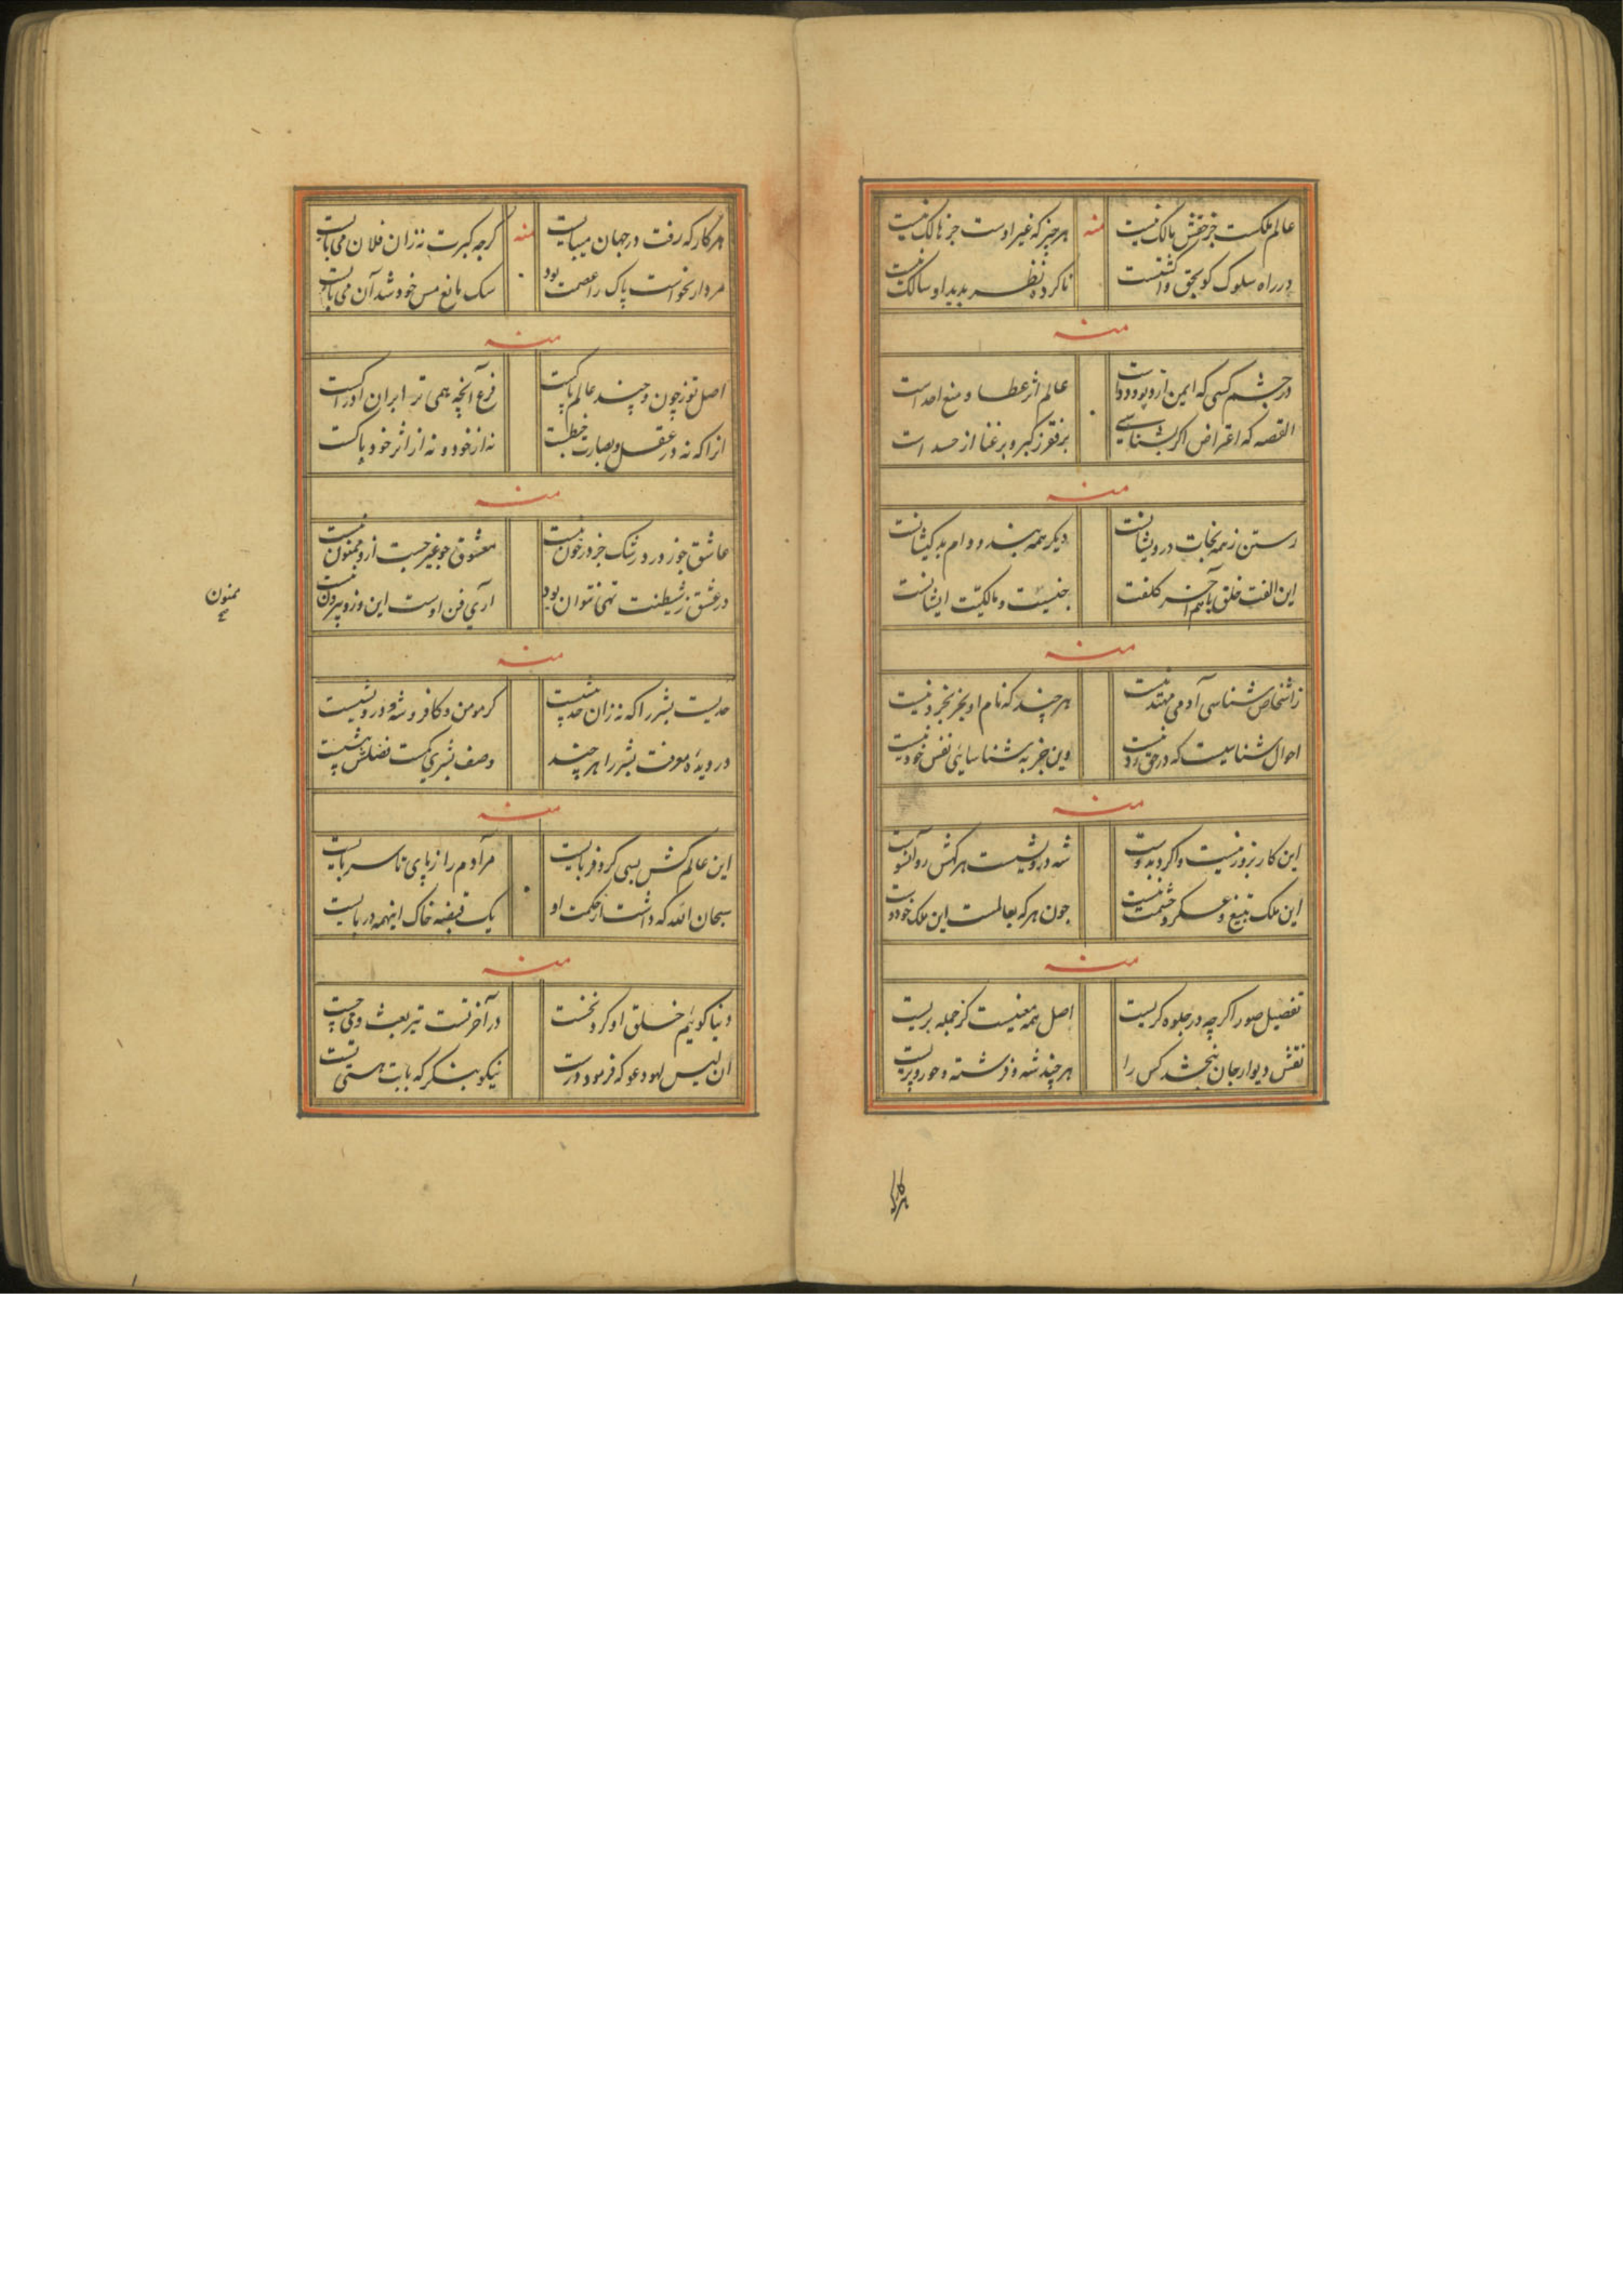 عالم ملکست جز حقش مالک نیست منه هر چیز که غیر اوست جز هالک نیست
در راه سلوک کو بحق وا نشست ناکرده نظر بدید او سالک نیست
منه
در چشم کسی که ایمن از و عالم اثر عطا و منع احد است
القصه که اعتراض اکر بشناسی بر فقر ز کبر و بر غنا از حسد است
منه
رستن ز همه نجات درویشانست دیکر همه بند و دام بد کیشانست
این الفت خلق با هم آخر کلفت جنسیت و مالکیّت ایشانست
منه
ز اشخاص شناسی آدمی مهتد نیست هر چند که نام او بجز بخرد نیست
احوال شناسیست که در حق رد نیست وین جز به شناسایئ نفس خود نیست
منه
این کار بزور نیست واکرد بدوست شه درویشست هر کش رو آنسوست
این ملک بتیغ و عسکر و حشمت نیست چون هر که بعالمست این ملک خود اوست
منه
تفصیل صور اکر چه در جلوه کریست اصل همه معنیست کز جمله بریست
نقش دیوار جان نبخشد کس را هر چند شه و فرشته و حور و پریست
هر کار که
هر کار که رفت در جهان میبایست منه کر چه کبرت نه زان فلان می بایست
مردار نخواست پاک را عصمت بود سک مانع مس خود شد آن می بایست
منه
اصل تو ز چون و چند عالم پاکست فرع آنچه همی تر ابران ادراکست
انرا که نه در عقل و بصارت خبطست نه از خود و نه از اثر خود پاکست
منه
عاشق جوزور در رشک جز در خون نیست معشوق جو غیر جست ازو ممنون نیست
در عشق ز شیطنت تهی نتوان بود آری فن اوست این وزو بیرون نیست
ممنون
منه
حدیست بشر را که نه زان حد بیشست کر مومن و کافر و شه و درویشست
در دیدهٔ معرفت بشر را هر چند وصف بشری کمست فضلش بیشست
منه
این عالم کش بسی کر و فر بایست مر آدم را ز پای تا سر بایست
سبحان الله که داشت از حکمت او یک قبضه خاک اینهمه در بایست
منه
دنیا کوئیم خلق او کرد نخست در آخر تست نیز بعث و می جست
ان لیس لهو دعو که فرمود درست نیکو بنکر که بابت هستی تست